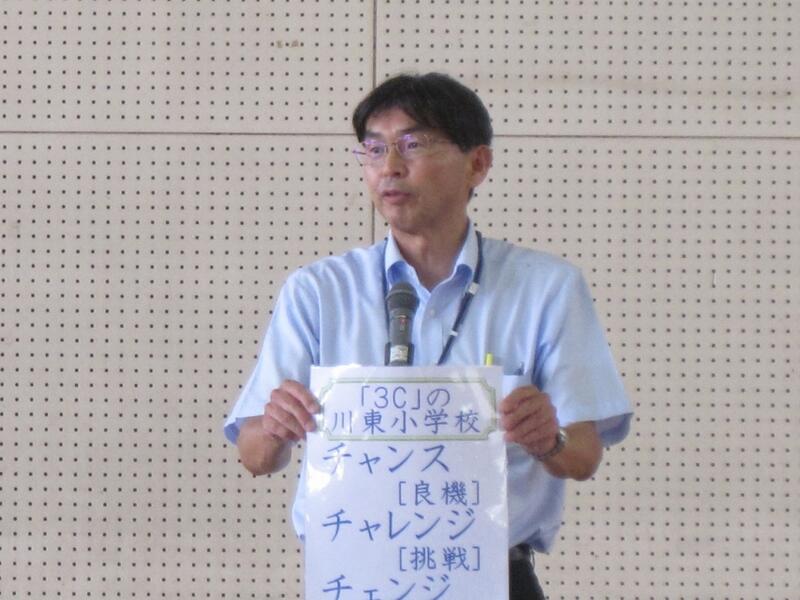 「3C」の
川東小学校
チャンス
[良機]
チャレンジ
[挑戦]
チェンジ